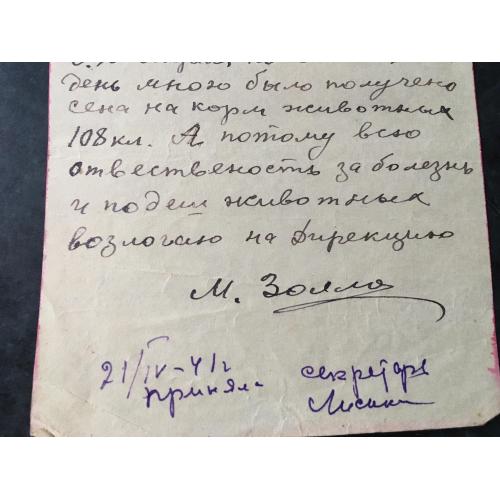 день много было получено
сена на корм животных
108кл. А потому всю
отвественость за болезнь
и подеш животных
возлогаю на Дирекцию
М. Золло
21/IV-41г
приняла
секретарь